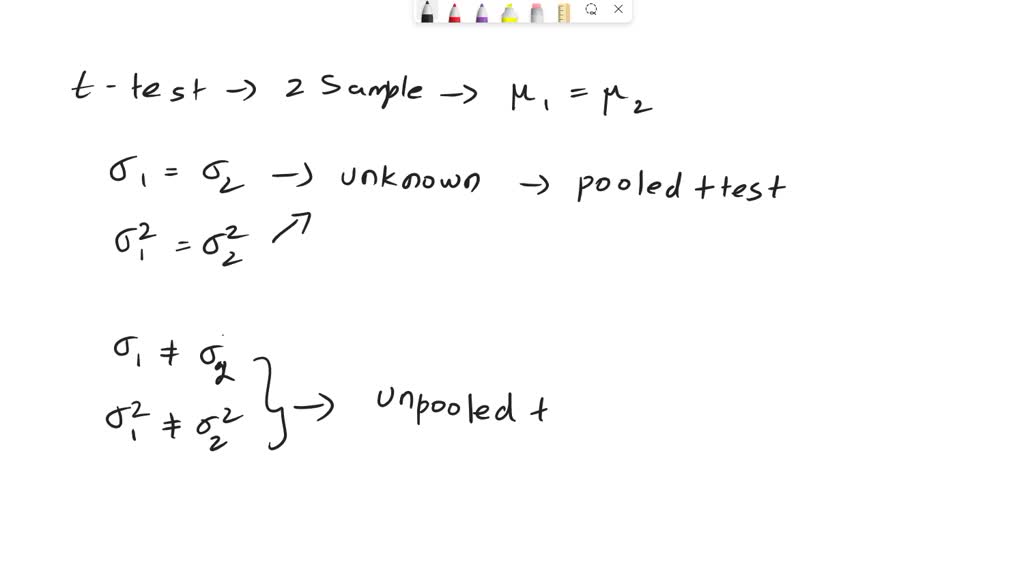 t - test → 2 Sample → μ₁ = μ₂
σ₁ = σ₂ → unknown → pooled t test
σ₁² = σ₂² ↗
σ₁ ≠ σ₂
σ₁² ≠ σ₂² } → unpooled t